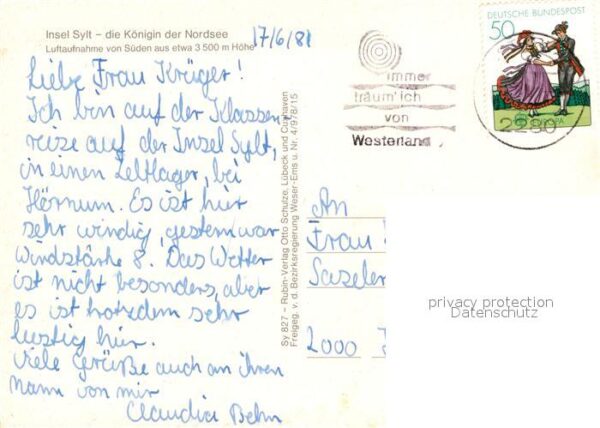 Insel Sylt – die Königin der Nordsee
Luftaufnahme von Süden aus etwa 3 500 m Höhe
17/6/81
Liebe Frau Krüger!
Ich bin auf der Klassen-
reise auf der Insel Sylt,
in einen Zeltlager, bei
Hörnum. Es ist hier
sehr windig, gestern war
Windstärke 8. Das Wetter
ist nicht besonders, aber
es ist trotzdem sehr
lustig hier.
Viele Grüße auch an ihren
Mann von mir
Claudia Behn
Sy 827 – Rubin-Verlag Otto Schulze, Lübeck und Cuxhaven
Freigeg. v. d. Bezirksregierung Weser-Ems u. Nr. 4/978/15
immer
träum' ich
von
Westerland
DEUTSCHE BUNDESPOST
50
2280
An
Frau
Saseler
2000
privacy protection
Datenschutz